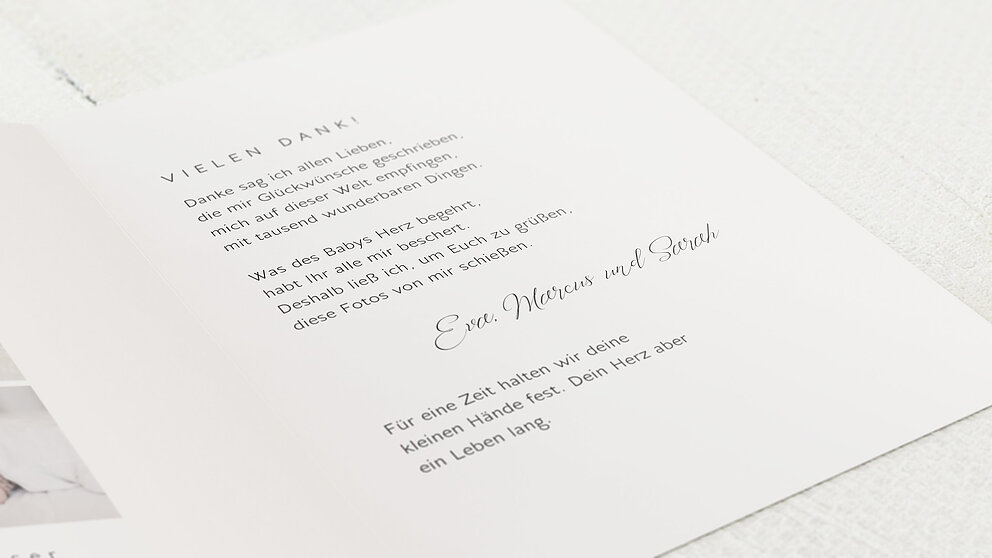 VIELEN DANK!
Danke sag ich allen Lieben,
die mir Glückwünsche geschrieben,
mich auf dieser Welt empfingen,
mit tausend wunderbaren Dingen.
Was des Babys Herz begehrt,
habt Ihr alle mir beschert.
Deshalb ließ ich, um Euch zu grüßen,
diese Fotos von mir schießen.
Eva, Marcus und Sarah
Für eine Zeit halten wir deine
kleinen Hände fest. Dein Herz aber
ein Leben lang.